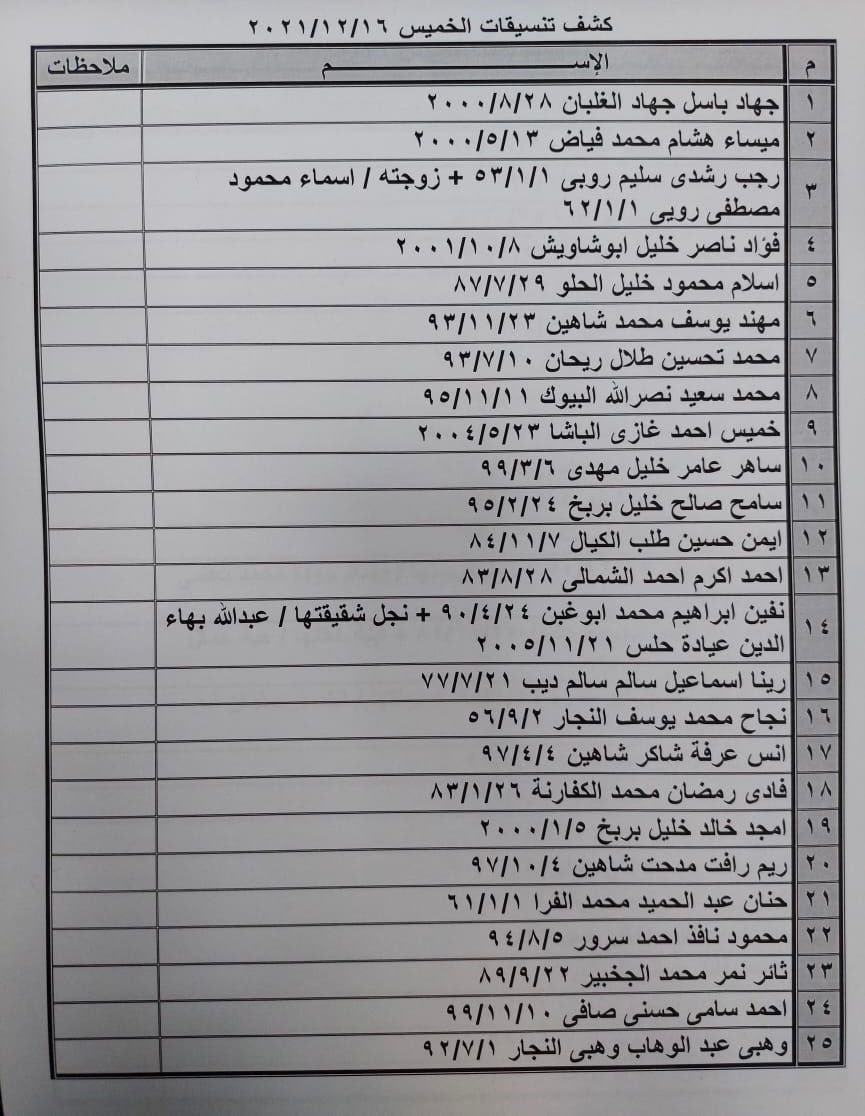 كشف تنسيقات الخميس ٢٠٢١/١٢/١٦
م الإســـــــــــم ملاحظات
١ جهاد باسل جهاد الغلبان ٢٠٠٠/٨/٢٨
٢ ميساء هشام محمد فياض ٢٠٠٠/٥/١٣
٣ رجب رشدى سليم روبى ٥٣/١/١ + زوجته / اسماء محمود
مصطفى روبى ٦٢/١/١
٤ فؤاد ناصر خليل ابوشاويش ٢٠٠١/١٠/٨
٥ اسلام محمود خليل الحلو ٨٧/٧/٢٩
٦ مهند يوسف محمد شاهين ٩٣/١١/٢٣
٧ محمد تحسين طلال ريحان ٩٣/٧/١٠
٨ محمد سعيد نصرالله البيوك ٩٥/١١/١١
٩ خميس احمد غازى الباشا ٢٠٠٤/٥/٢٣
١٠ ساهر عامر خليل مهدى ٩٩/٣/٦
١١ سامح صالح خليل بربخ ٩٥/٢/٢٤
١٢ ايمن حسين طلب الكيال ٨٤/١١/٧
١٣ احمد اكرم احمد الشمالى ٨٣/٨/٢٨
١٤ نفين ابراهيم محمد ابوغبن ٩٠/٤/٢٤ + نجل شقيقتها / عبدالله بهاء
الدين عيادة حلس ٢٠٠٥/١١/٢١
١٥ رينا اسماعيل سالم سالم ديب ٧٧/٧/٢١
١٦ نجاح محمد يوسف النجار ٥٦/٩/٢
١٧ انس عرفة شاكر شاهين ٩٧/٤/٤
١٨ فادى رمضان محمد الكفارنة ٨٣/١/٢٦
١٩ امجد خالد خليل بربخ ٢٠٠٠/١/٥
٢٠ ريم رافت مدحت شاهين ٩٧/١٠/٤
٢١ حنان عبد الحميد محمد الفرا ٦١/١/١
٢٢ محمود نافذ احمد سرور ٩٤/٨/٥
٢٣ ثائر نمر محمد الجخبير ٨٩/٩/٢٢
٢٤ احمد سامى حسنى صافى ٩٩/١١/١٠
٢٥ وهبى عبد الوهاب وهبى النجار ٩٢/٧/١